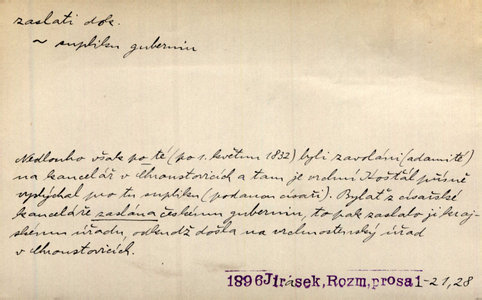 zaslati dok.
~ supliku guberniu
Nedlouho však po té (po 1. květnu 1832) byli zavoláni (adamité)
na kancelář v Chroustovicích a tam je vrchní Košťál přísně
vyslýchal pro tu supliku (podanou císaři). Bylať z císařské
kanceláře zaslána českému guberniu, to pak zaslalo ji kraj-
skému úřadu, odkudž došla na vrchnostenský úřad
v Chroustovicích.
1896 Jirásek, Rozm, prosa 1-21,28